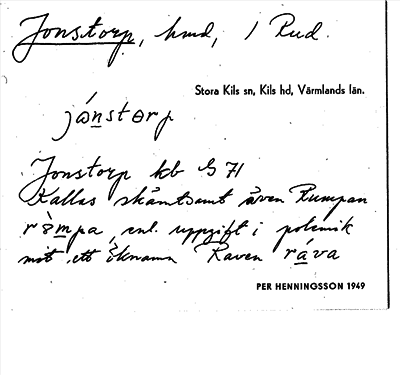 Jonstorp, hmd, i Rud.
Stora Kils sn, Kils hd, Värmlands län.
jónstorp
Jonstorp kb G 71
Kallas skämtsamt även Rumpan
rompa, enl. uppgift i polemik
mot ett öknamn Raven ráva
PER HENNINGSSON 1949